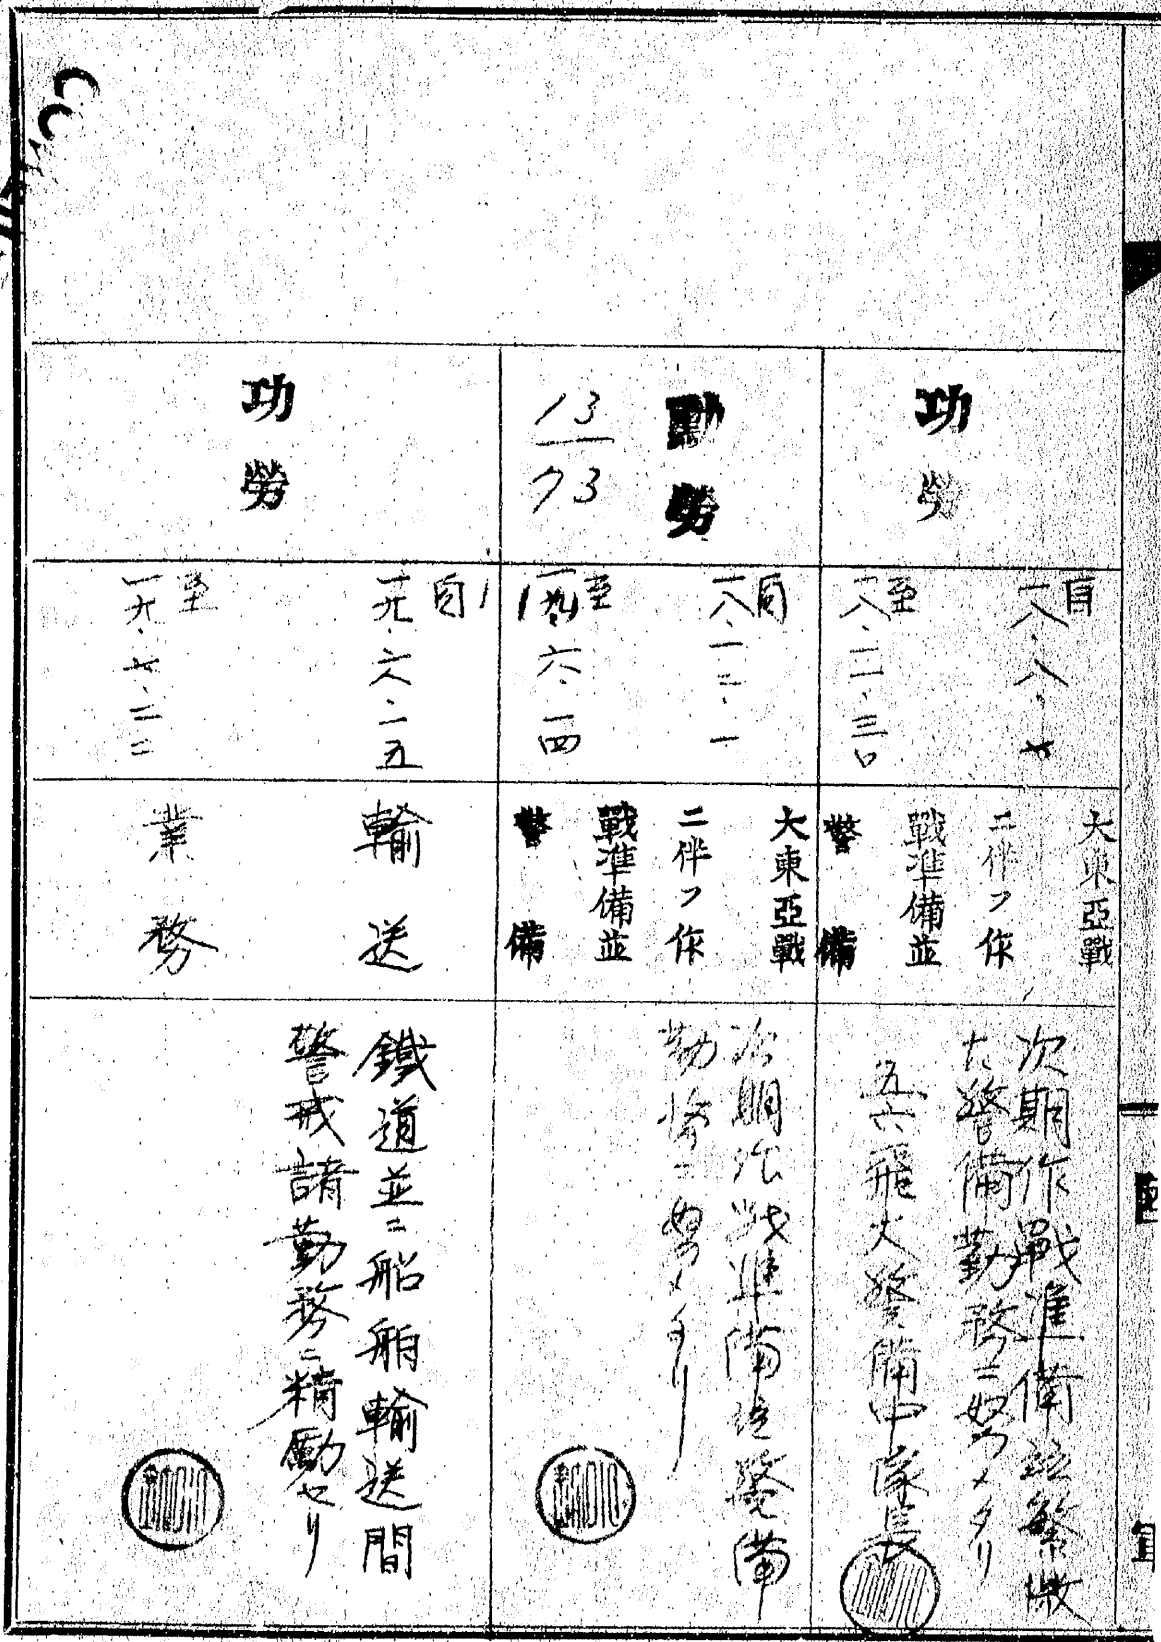 功勞
自
一八・八・七
至
一八・一一・三〇
大東亞戰
ニ伴フ作
戰準備並
警備
次期作戰準備並繁激
ナ警備勤務ニ努メタリ
五六飛大警備中隊長
勲勞
13
73
自
一八・一二・一
至
一九・六・一四
大東亞戰
ニ伴フ作
戰準備並
警備
次期作戦準備並警備
勤務ニ努メタリ
功勞
自
一九・六・一五
至
一九・七・二二
輸送
業務
鐵道並ニ船舶輸送間
警戒諸勤務ニ精勵セリ